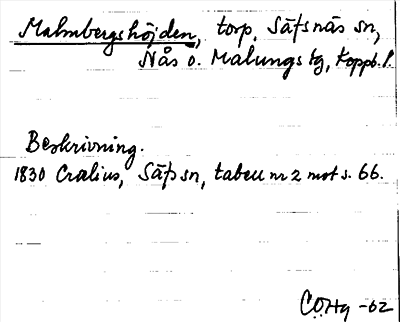 Malmbergshöjden, torp, Säfsnäs sn,
Nås o. Malungs tg, Koppb. l.
Beskrivning.
1830 Crælius, Säfs sn, tabell nr 2 mot s. 66.
COHg -62